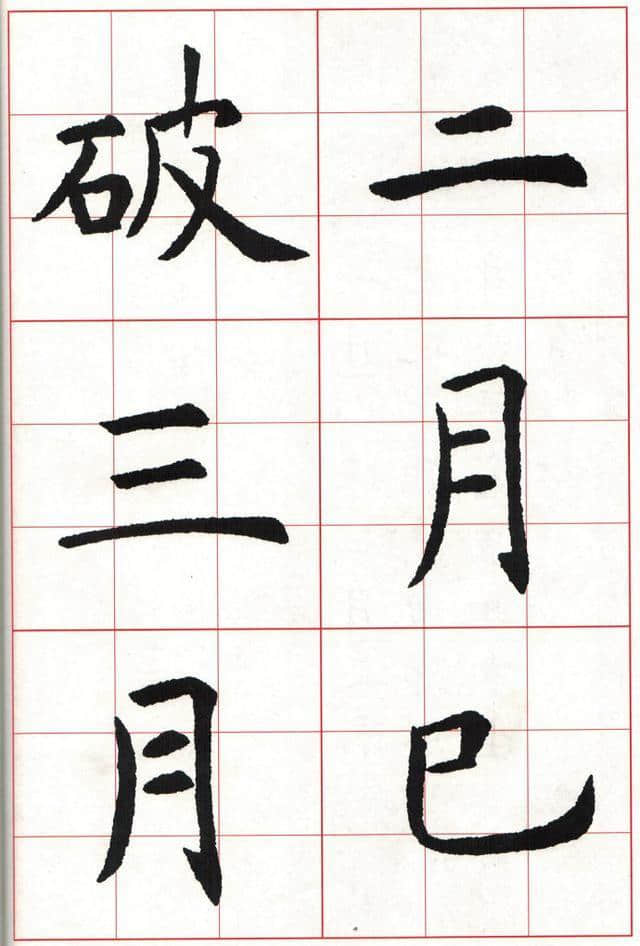 二月巳
破三月